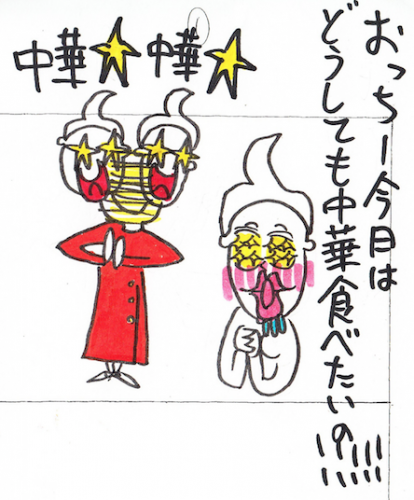 おっちー今日は
どうしても中華食べたいの!!!!!
中華★中華★